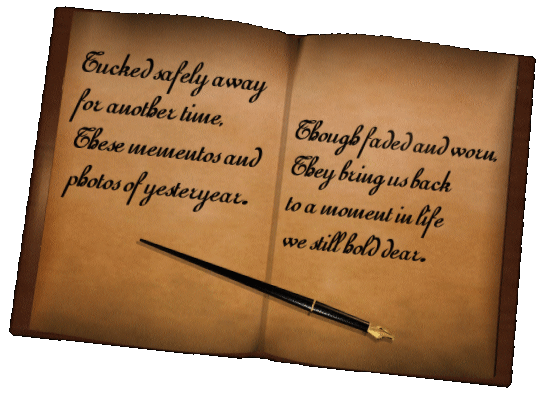 Tucked safely away
for another time,
These mementos and
photos of yesteryear.
Though faded and worn,
They bring us back
to a moment in life
we still hold dear.